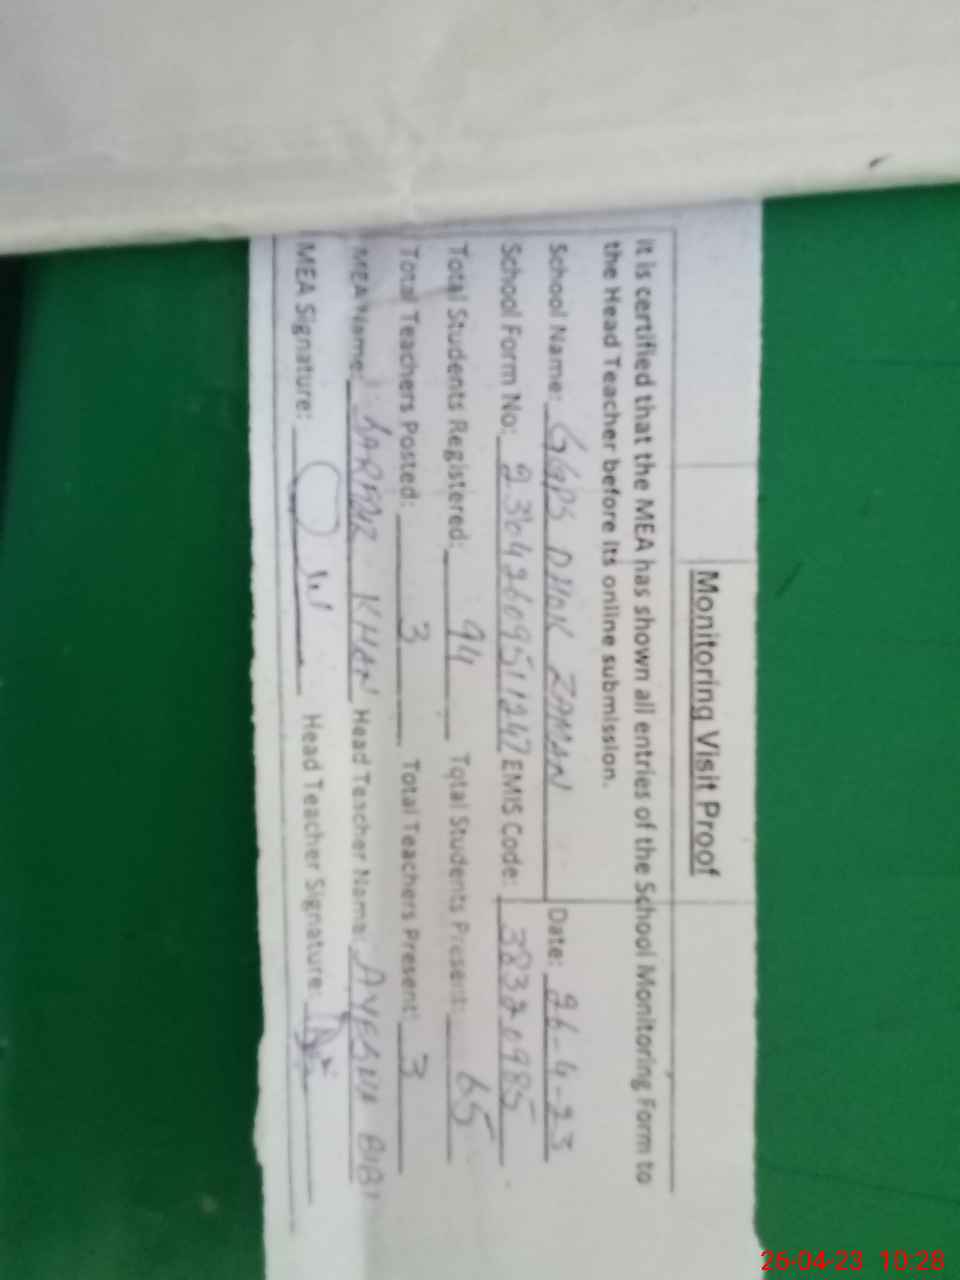 Monitoring Visit Proof
It is certified that the MEA has shown all entries of the School Monitoring Form to
the Head Teacher before its online submission.
School Name: GGPS DHOK ZAMAN Date: 26-4-23
School Form No: 23042609511247 EMIS Code: 38320985
Total Students Registered: 94 Total Students Present: 65
Total Teachers Posted: 3 Total Teachers Present: 3
MEA Name: SARFRAZ KHAN Head Teacher Name: AYESHA BIBI
MEA Signature: Head Teacher Signature:
26-04-23 10:28